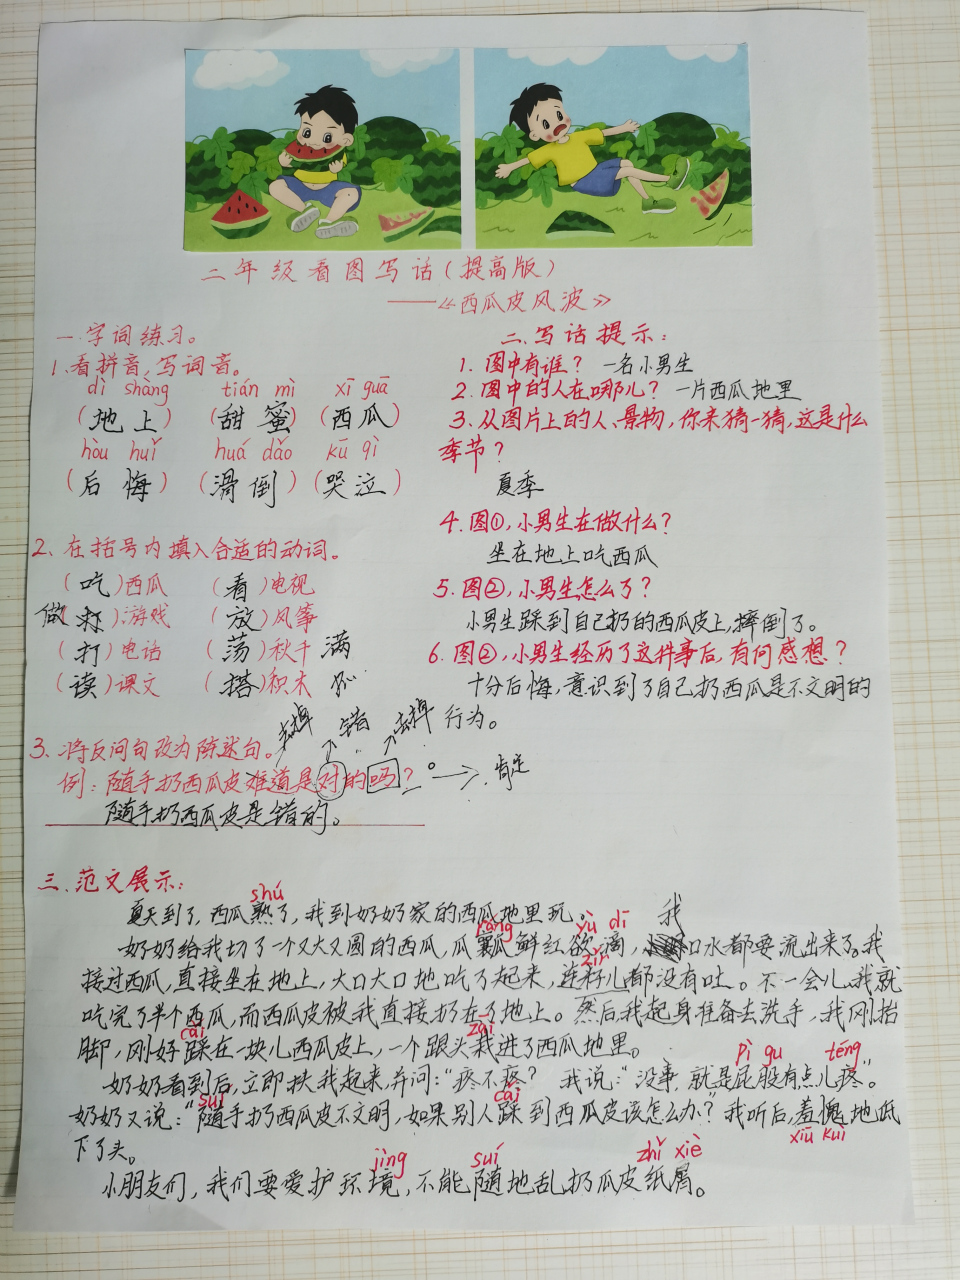 二年级看图写话(提高版)
——《西瓜皮风波》
一.字词练习。
1.看拼音,写词音。
dì shàng tián mì xī guā
(地上) (甜蜜) (西瓜)
hòu huǐ huá dǎo kū qì
(后悔) (滑倒) (哭泣)
2、在括号内填入合适的动词。
(吃)西瓜 (看)电视
做(打)游戏 (放)风筝
(打)电话 (荡)秋千 满
(读)课文 (搭)积木
3、将反问句改为陈述句。
去掉 错 去掉
例:随手扔西瓜皮难道是对的吗?。→肯定
随手扔西瓜皮是错的。
二.写话提示:
1.图中有谁? 一名小男生
2.图中的人在哪儿? 一片西瓜地里
3.从图片上的人、景物,你来猜一猜,这是什么
季节?
夏季
4.图①,小男生在做什么?
坐在地上吃西瓜
5.图②,小男生怎么了?
小男生踩到自己扔的西瓜皮上,摔倒了。
6.图②,小男生经历了这件事后,有何感想?
十分后悔,意识到了自己扔西瓜是不文明的
行为。
三.范文展示:
shú
夏天到了,西瓜熟了,我到奶奶家的西瓜地里玩。
ráng yù dī 我
奶奶给我切了一个又大又圆的西瓜,瓜瓤鲜红欲滴,口水都要流出来了。我
zǐr
接过西瓜,直接坐在地上,大口大口地吃了起来,连籽儿都没有吐。不一会儿,我就
吃完了半个西瓜,而西瓜皮被我直接扔在了地上。然后我起身准备去洗手,我刚抬
cǎi zāi
脚,刚好踩在一块儿西瓜皮上,一个跟头栽进了西瓜地里。
pì gu téng
奶奶看到后,立即扶我起来,并问:“疼不疼? 我说:“没事,就是屁股有点儿疼”。
suí cǎi
奶奶又说:“随手扔西瓜皮不文明,如果别人踩到西瓜皮该怎么办?”我听后,羞愧地低
xiū kuì
下了头。
jìng suí zhǐ xiè
小朋友们,我们要爱护环境,不能随地乱扔瓜皮纸屑。